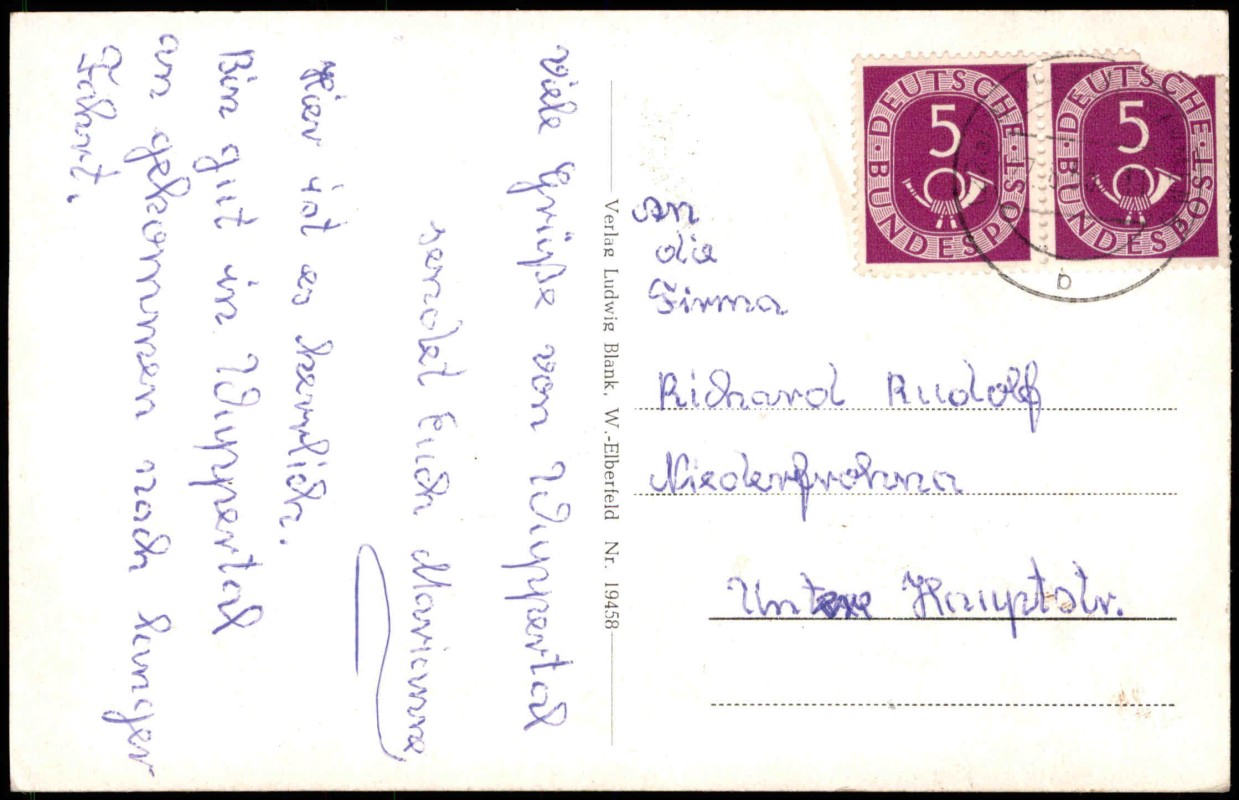 Viele Grüße von Wuppertal
sendet Euch Marianne
Hier ist es herrlich.
Bin gut in Wuppertal
an gekommen nach langer
Fahrt.
Verlag Ludwig Blank, W.-Elberfeld Nr. 19458
DEUTSCHE BUNDESPOST
5
DEUTSCHE BUNDESPOST
5
b
An
die
Firma
Richard Rudolf
Niederfrohna
Untere Hauptstr.